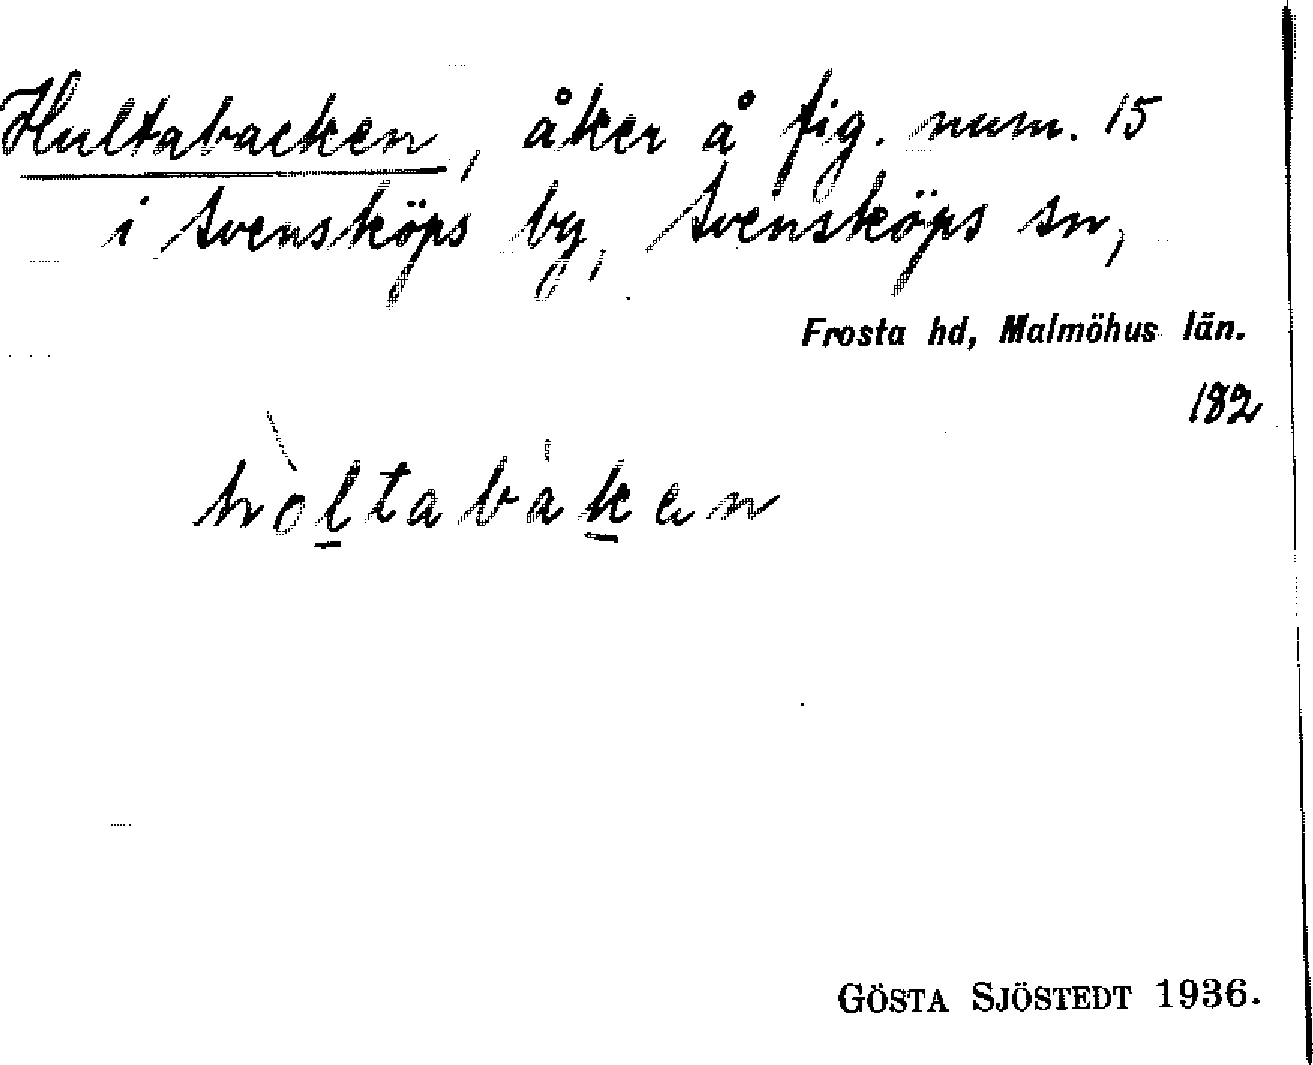 Hultabacken, åker å fig. num. 15
i Svensköps by, Svensköps sn,
Frosta hd, Malmöhus län.
182
hòltabáken
GÖSTA SJÖSTEDT 1936.